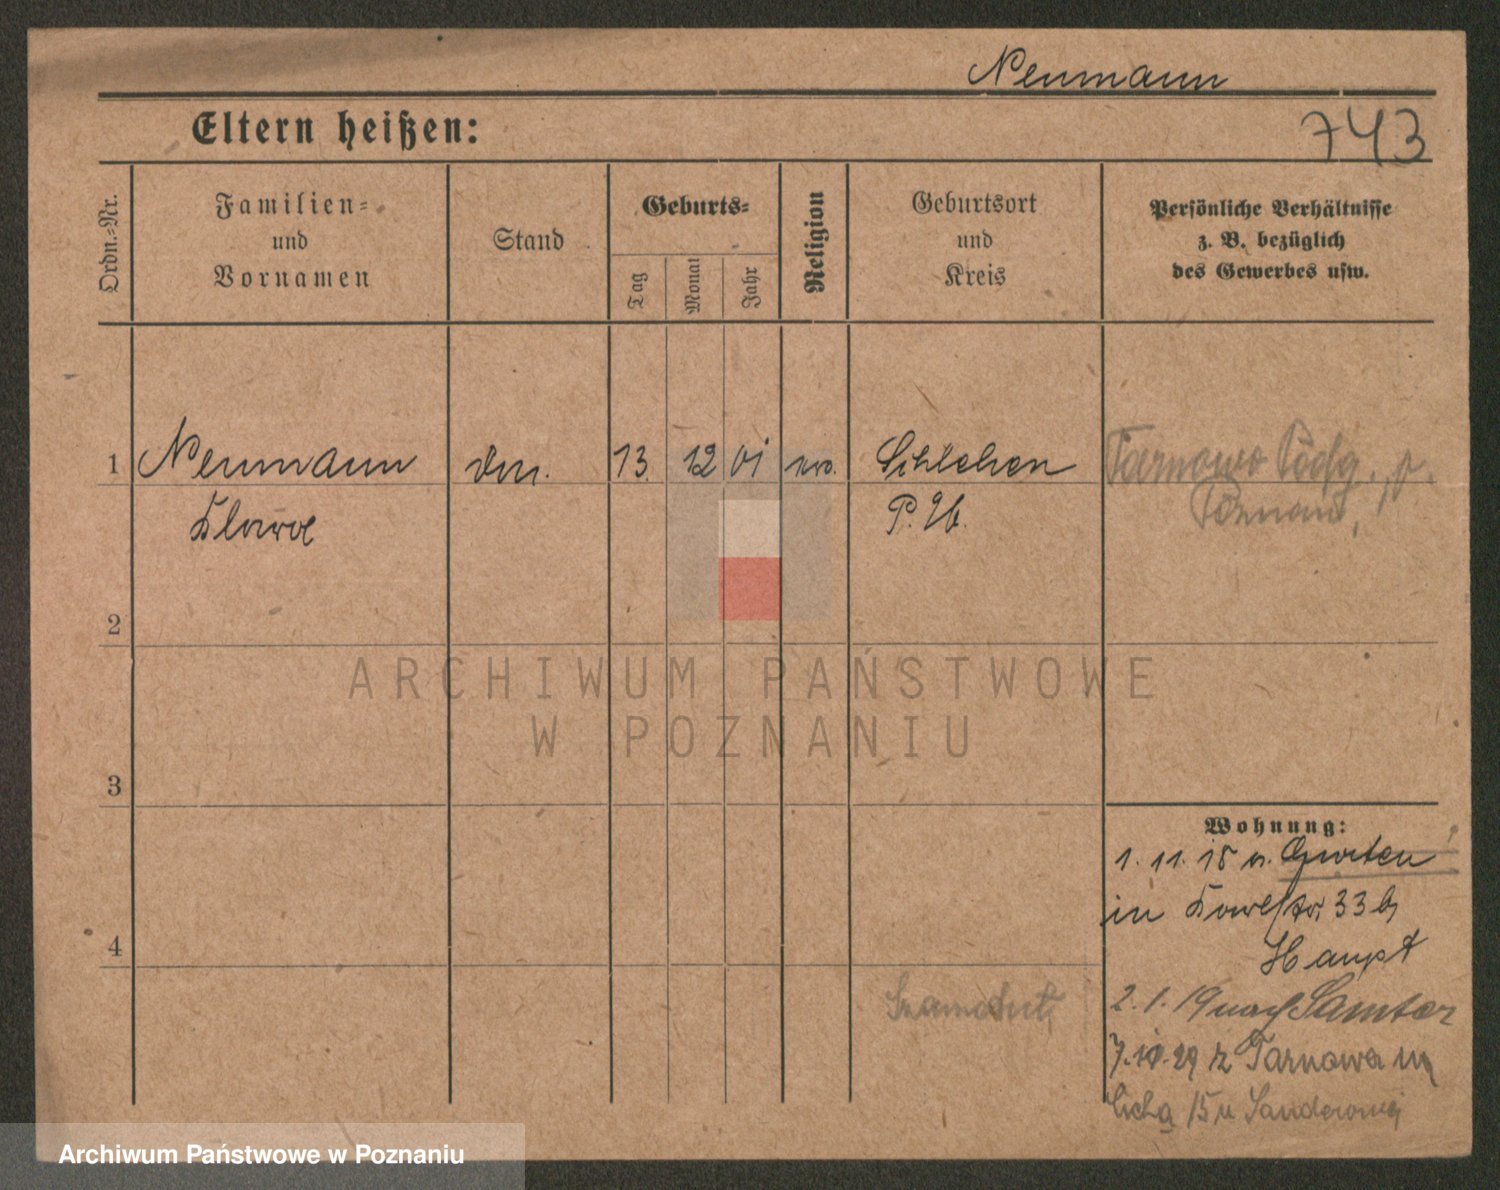 Neumann
Eltern heißen:
743
Ordn.-Nr.
Familien-
und
Vornamen
Stand
Geburts-
Tag
Monat
Jahr
Religion
Geburtsort
und
Kreis
Persönliche Verhältnisse
z. B. bezüglich
des Gewerbes usw.
1 Neumann 13. 12 01 Schlehen
Klara P. W.
Tarnowo Podg., p.
Poznań,
2
ARCHIWUM PAŃSTWOWE
W POZNANIU
3
Wohnung:
1. 11. 18 v. Gurten
in 33 b
Haupt
4
2. 1. 19 nach Samter
Szamotuły
7. 10. 29 z Tarnowa na
Cichą 15 u
Archiwum Państwowe w Poznaniu